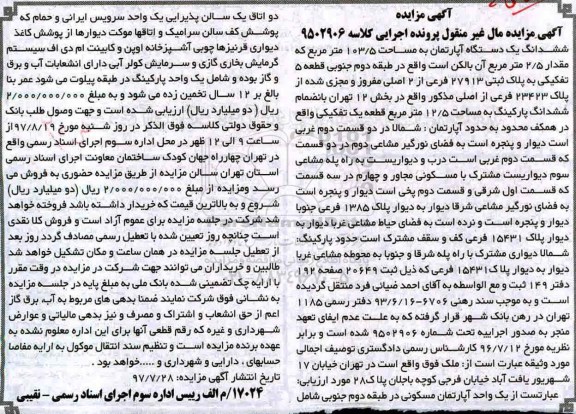 آگهی مزایده
آگهی مزایده مال غیر منقول پرونده اجرایی کلاسه ۹۵۰۲۹۰۶
ششدانگ یک دستگاه آپارتمان به مساحت ۱۰۳/۵ متر مربع که
مقدار ۲/۵ متر مربع آن بالکن است واقع در طبقه دوم جنوبی قطعه ۵
تفکیکی به پلاک ثبتی ۲۷۹۱۳ فرعی از ۲ اصلی مفروز و مجزی شده از
پلاک ۲۳۴۲۳ فرعی از اصلی مذکور واقع در بخش ۱۲ تهران بانضمام
ششدانگ پارکینگ به مساحت ۱۲/۵ متر مربع قطعه یک تفکیکی واقع
در همکف محدود به حدود آپارتمان : شمالا در دو قسمت دوم غربی
است دیوار و پنجره است به فضای نورگیر مشاعی دوم در دو قسمت
که قسمت دوم غربی است درب و دیواریست به راه پله مشاعی
سوم دیواریست مشترک با مسکونی مجاور و چهارم در سه قسمت
که قسمت اول شرقی و قسمت دوم پخی است دیوار و پنجره است
به فضای نورگیر مشاعی شرقا دیوار به دیوار پلاک ۱۳۸۵ فرعی جنوبا
دیوار و پنجره است و نرده است به فضای حیاط مشاعی غربا دیوار به
دیوار پلاک ۱۵۴۳۱ فرعی کف و سقف مشترک است حدود پارکینگ:
شمالا دیواری مشترک با راه پله شرقا و جنوبا به محوطه مشاعی غربا
دیوار به دیوار پلاک ۱۵۴۳۱ فرعی که ذیل ثبت ۲۰۶۴۹ صفحه ۱۹۲
دفتر ۱۴۹ ثبت و مع الواسطه به آقای احمد ضیائی فرد منتقل گردیده
است و به موجب سند رهنی ۶۷۰۶-۹۳/۶/۱۶ دفتر رسمی ۱۱۸۵
تهران در رهن بانک شهر قرار گرفته که به علت عدم ایفای تعهد
منجر به صدور اجراییه تحت شماره ۹۵۰۲۹۰۶ شده است و برابر
نظریه مورخ ۹۶/۷/۱۲ کارشناس رسمی دادگستری توصیف اجمالی
مورد وثیقه عبارت است از: ملک فوق واقع است در تهران خیابان ۱۷
شهریور یافت آباد خیابان فرجی کوچه باجلان پلاک۲۸ مورد ارزیابی:
عبارتست از یک واحد آپارتمان مسکونی در طبقه دوم جنوبی شامل
دو اتاق یک سالن پذیرایی یک واحد سرویس ایرانی و حمام که
پوشش کف سالن سرامیک و اتاقها موکت دیوارها از پوشش کاغذ
دیواری قرنیزها چوبی آشپزخانه اوپن و کابینت ام دی اف سیستم
گرمایش بخاری گازی و سرمایش کولر آبی دارای انشعابات آب و برق
و گاز بوده و شامل یک واحد پارکینگ در طبقه پیلوت می شود عمر بنا
بالغ بر ۱۲ سال تخمین زده می شود و به مبلغ ۲/۰۰۰/۰۰۰/۰۰۰
ریال ( دو میلیارد ریال) ارزیابی شده است و جهت وصول طلب بانک
و حقوق دولتی کلاسه فوق الذکر در روز شنبه مورخ ۹۷/۸/۱۹از
ساعت ۹ الی ۱۲ ظهر در محل اداره سوم اجرای اسناد رسمی واقع
در تهران چهارراه جهان کودک ساختمان معاونت اجرای اسناد رسمی
استان تهران سالن مزایده از طریق مزایده حضوری به فروش می
رسد ومزایده از مبلغ ۲/۰۰۰/۰۰۰/۰۰۰ ریال (دو میلیارد ریال)
شروع و به بالاترین قیمت که خریدار داشته باشد فروخته خواهد
شد شرکت در جلسه مزایده برای عموم آزاد است و فروش کلا نقدی
است چنانچه روز تعیین شده با تعطیل رسمی مصادف گردد روز بعد
از تعطیل جلسه مزایده در همان ساعت و مکان تشکیل خواهد شد
طالبین و خریداران می توانند جهت شرکت در مزایده در وقت مقرر
با ارایه چک تضمینی شده بانک ملی به مبلغ پایه در جلسه مزایده
به نشانی فوق شرکت نمایند ضمنا بدهی های مربوط به آب، برق گاز
اعم از حق انشعاب و اشتراک و مصرف و نیز بدهی مالیاتی و عوارض
شهرداری و غیره که رقم قطعی آنها برای این اداره معلوم نشده به
عهده برنده مزایده است و تنظیم سند انتقال موکول به ارایه مفاصا
حسابهای ، دارایی و شهرداری و .....خواهد بود .
تاریخ انتشار آگهی مزایده: ۹۷/۷/۲۸
۱۷۰۲۴/م الف رییس اداره سوم اجرای اسناد رسمی - نقیبی